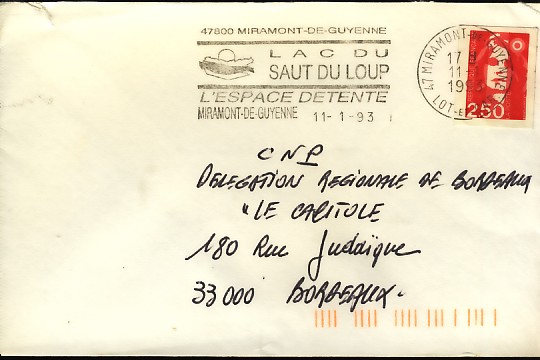 47800 MIRAMONT-DE-GUYENNE
LAC DU
SAUT DU LOUP
L'ESPACE DETENTE
MIRAMONT-DE-GUYENNE 11-1-93
47 MIRAMONT-DE-GUYENNE
17 H
11-1
1993
LOT-ET-
2,50
CNP
DELEGATION REGIONALE DE BORDEAUX
"LE CAPITOLE
180 Rue Judaïque
33000 BORDEAUX.